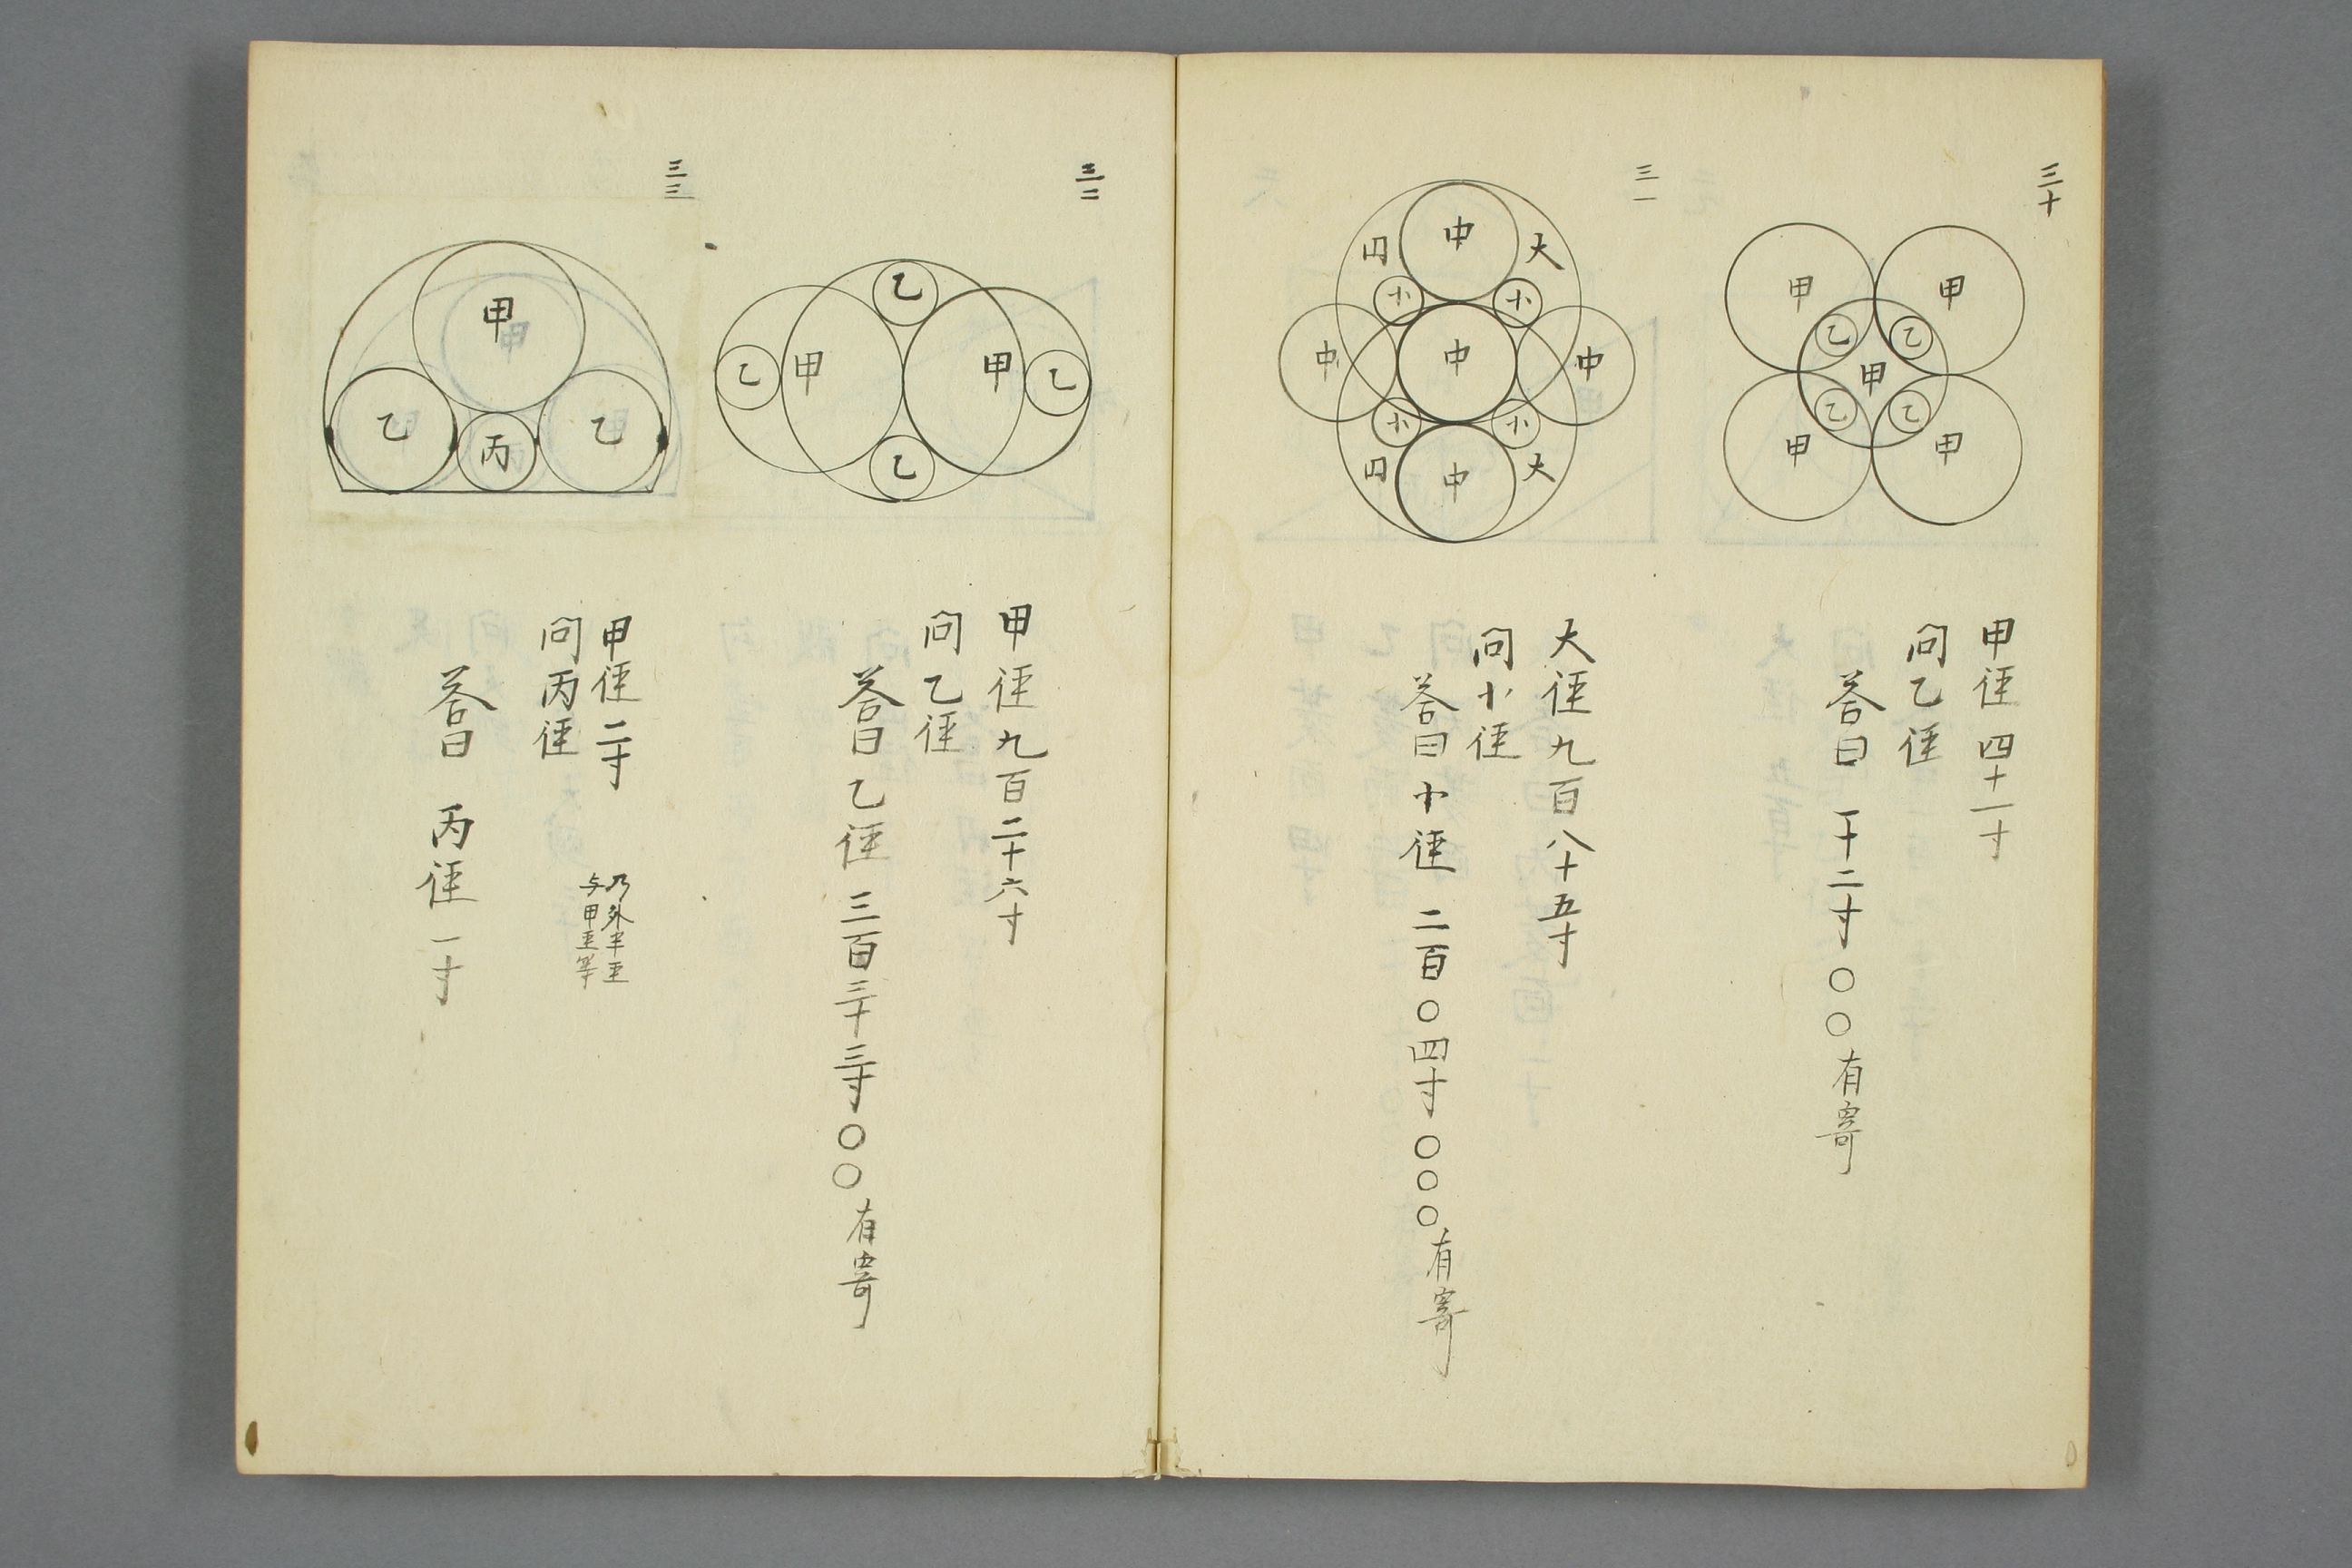 三十
甲 甲
乙 乙
甲
乙 乙
甲 甲
甲径四十一寸
問乙径
答曰 一十二寸〇〇有寄
三一
円 中 大
小 小
中 中 中
小 小
円 中 大
大径九百八十五寸
問小径
答曰小径 二百〇四寸〇〇〇有寄
三二
乙
乙 甲 甲 乙
乙
甲径九百二十六寸
問乙径
答曰乙径三百三十三寸〇〇有寄
三三
甲
乙 丙 乙
甲径二寸
乃外半径
与甲径等
問丙径
答曰 丙径一寸